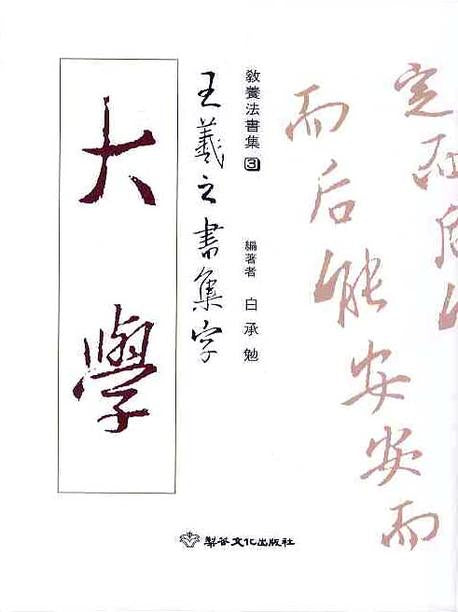 定而后
而后能安安而
敎養法書集 3
編著者 白承勉
王羲之書集字
大學
梨花文化出版社